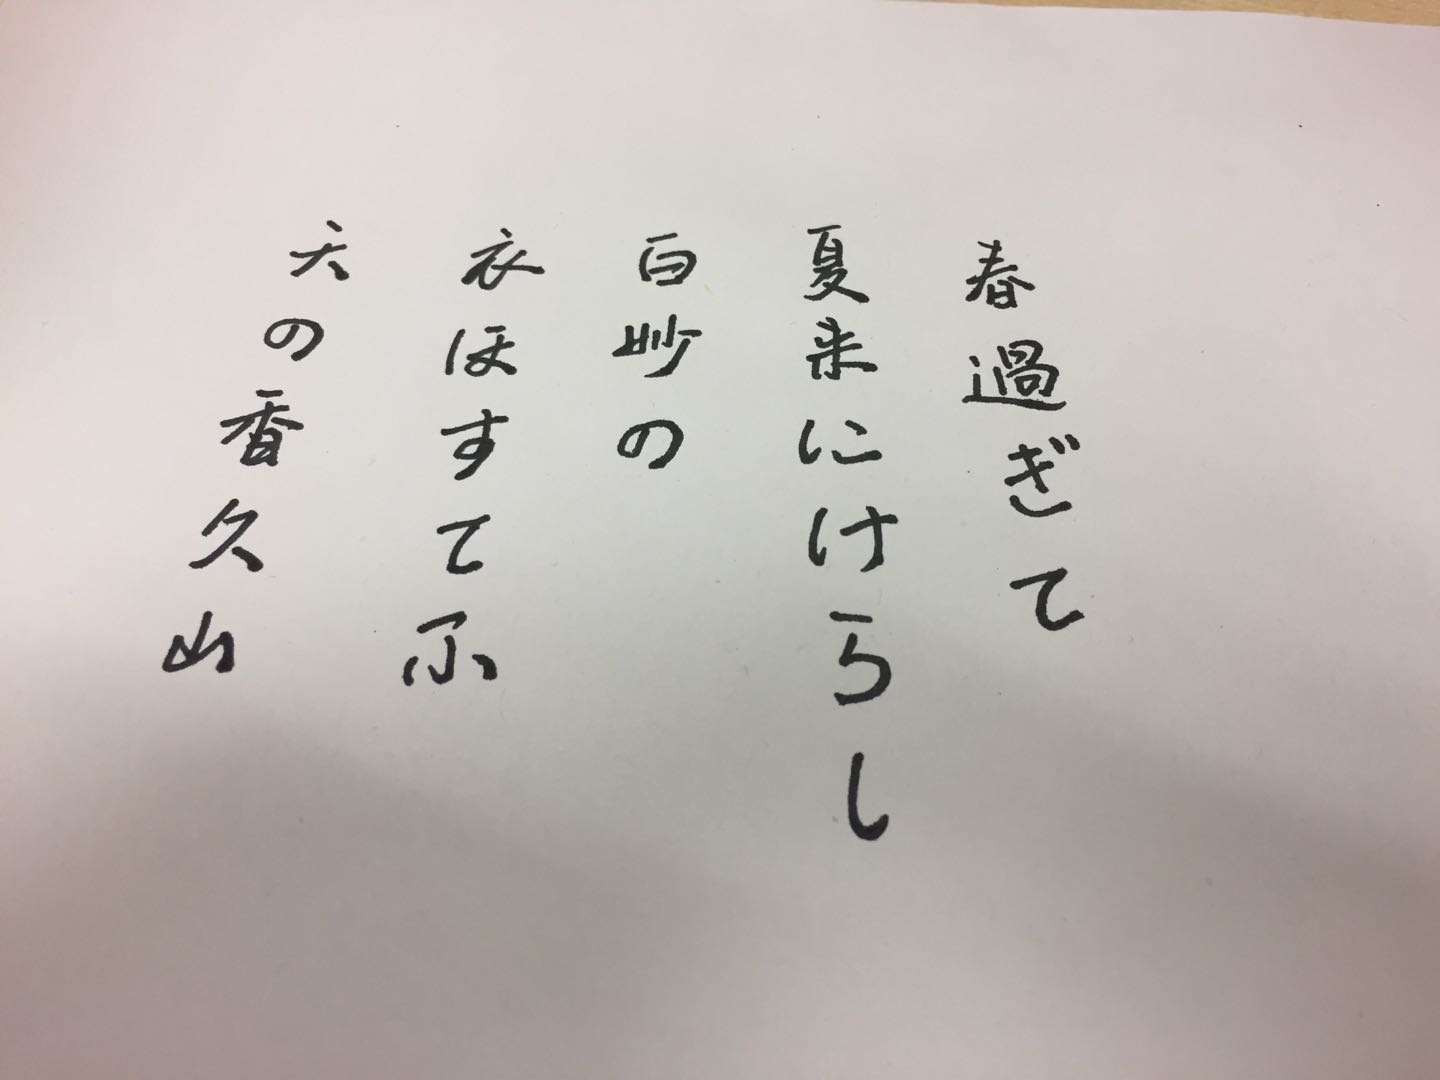 春過ぎて
夏来にけらし
白妙の
衣ほすてふ
天の香久山